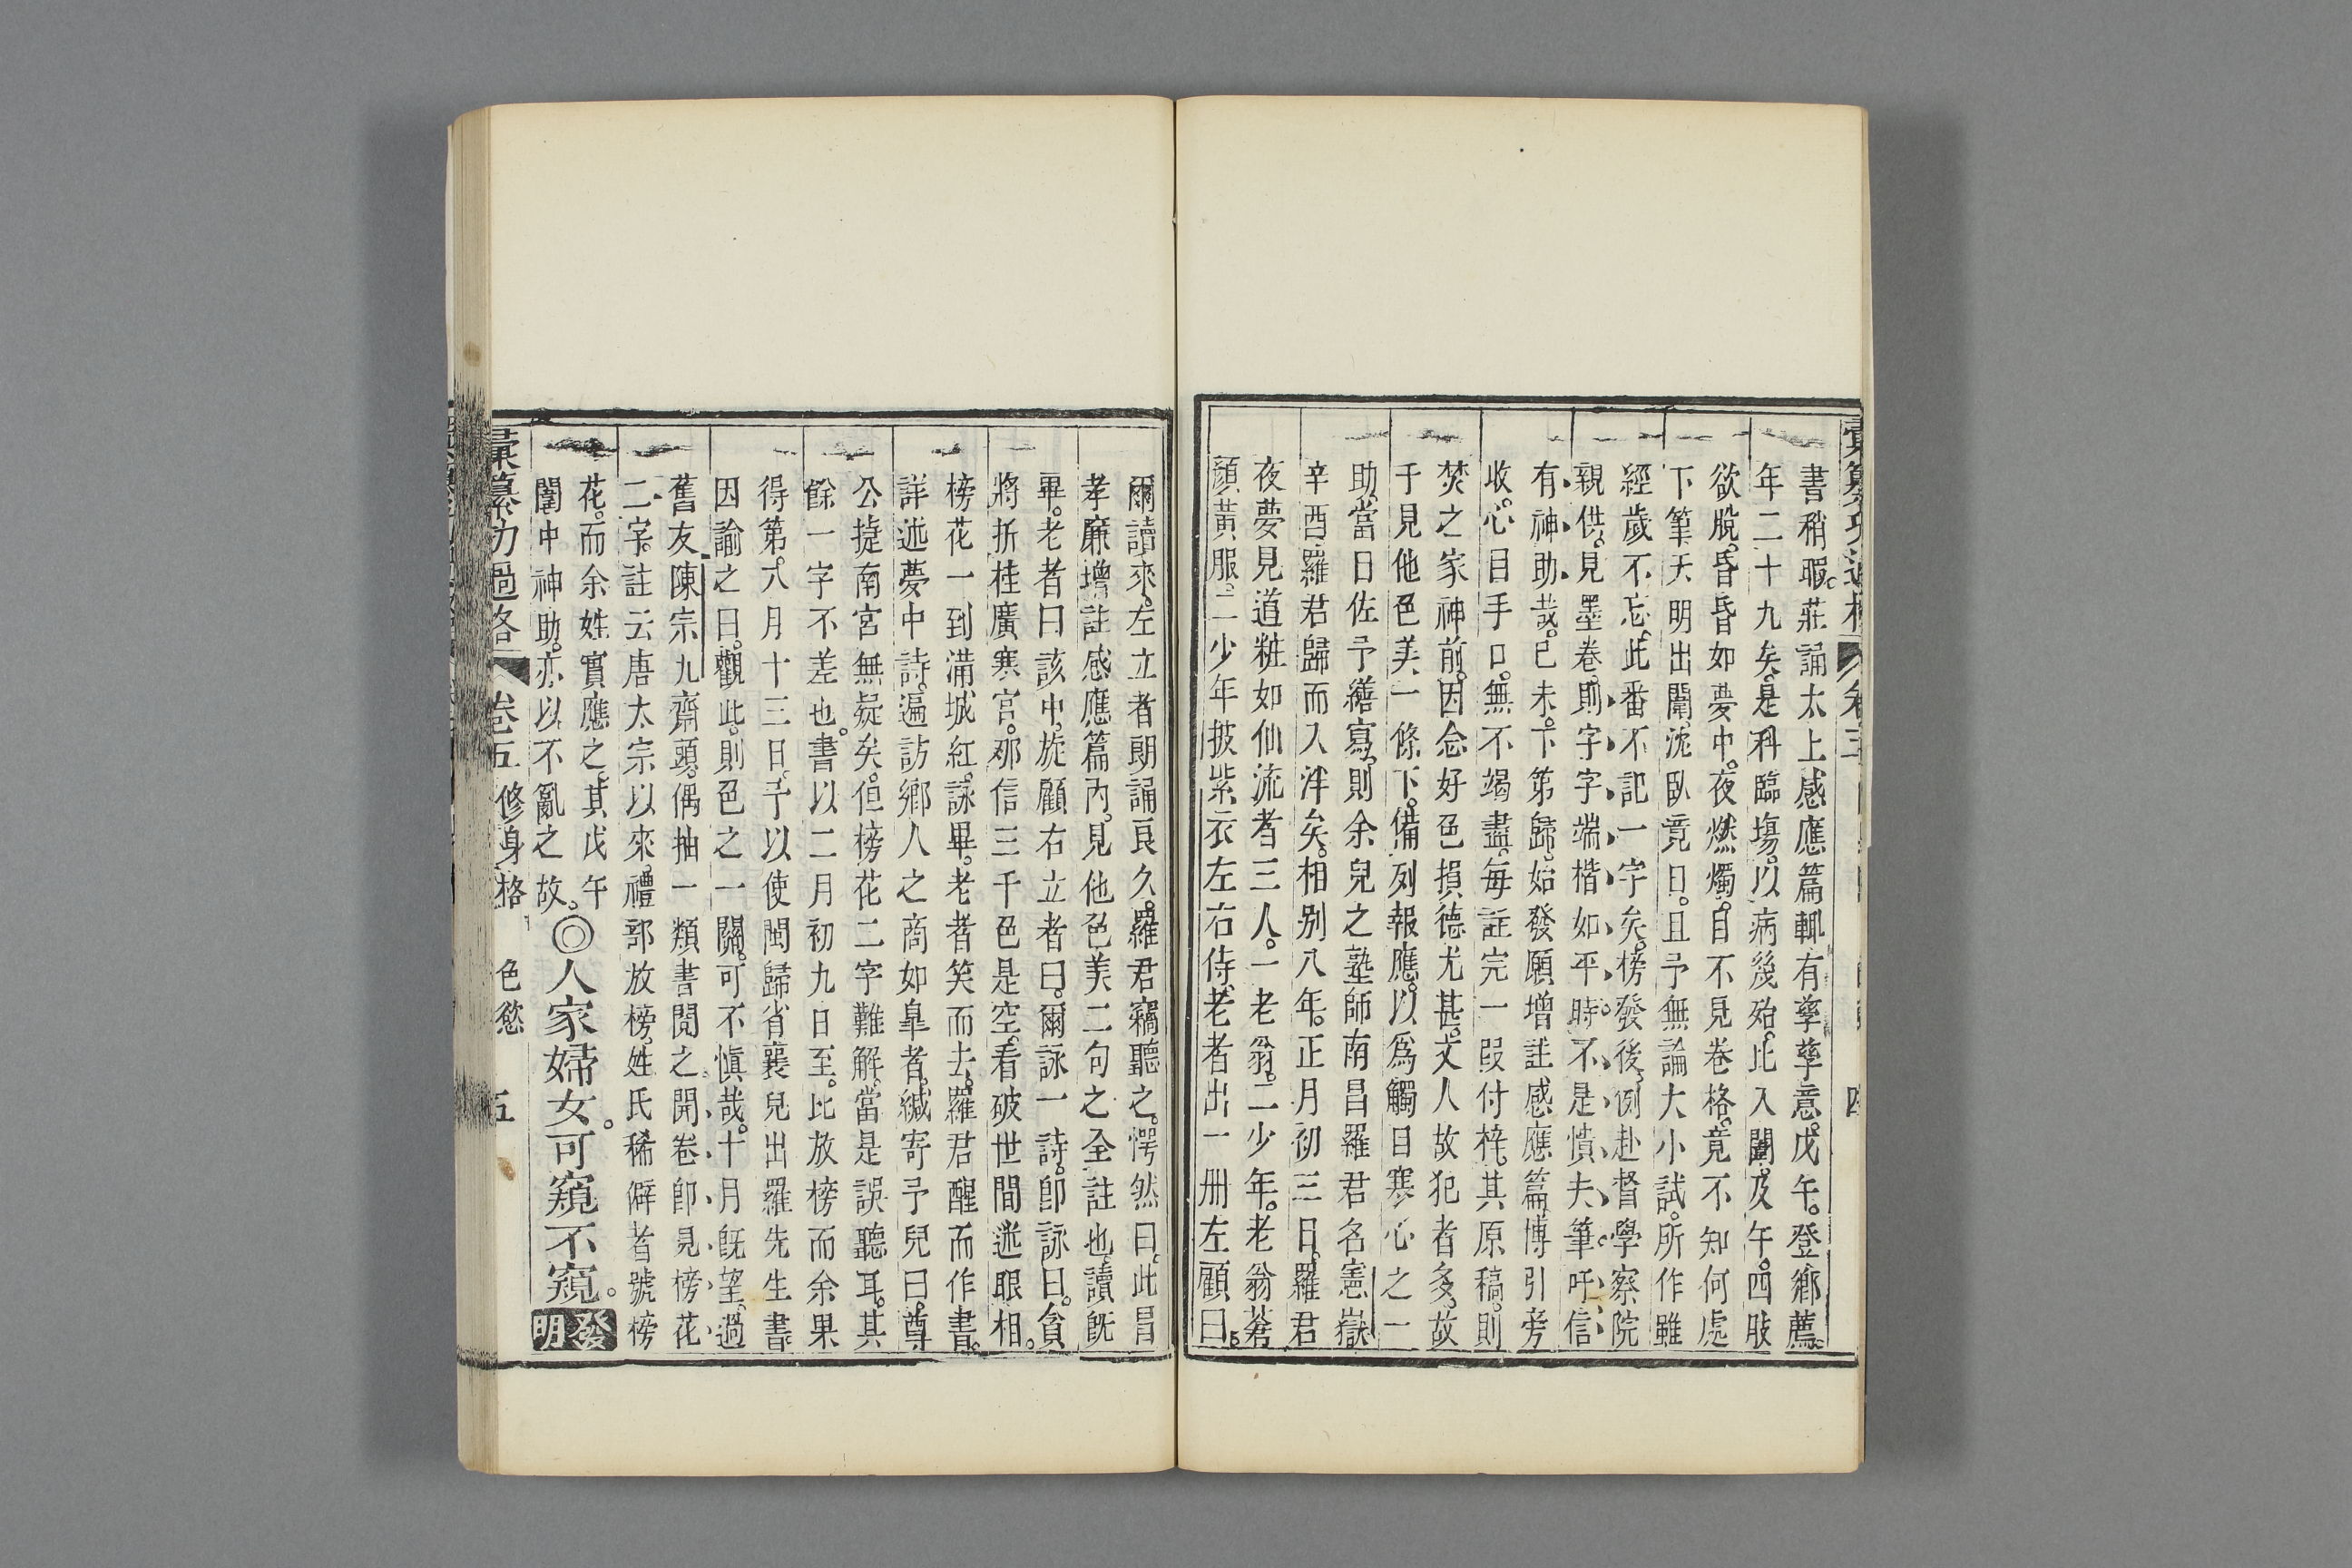 書稍暇。莊誦太上感應篇輒有孳孳意。戊午。登鄉薦。
年二十九矣。是科臨塲。以病後殆。比入闈。及午。四肢
欲脫。昏昏如夢中。夜燃燭。目不見卷格。竟不知何處
下筆。天明出闈。沈臥竟日。且予無論大小試。所作雖
經歲不忘。此番不記一字矣。榜發後。例赴督學察院
親供。見墨卷。則字字端楷如平時。不是憒夫筆。吁信
有神助哉。已未。下第歸。始發願增註感應篇。博引旁
收。心目手口。無不竭盡。每註完一叚付梓。其原稿。則
焚之家神前。因念好色損德尤甚。文人故犯者多。故
于見他色美一條下。備列報應。以爲觸目寒心之一
助。當日佐予繕寫。則余兒之塾師南昌羅君名憲嶽
辛酉羅君歸而入泮矣。相別八年。正月初三日。羅君
夜夢見道粧如仙流者三人。一老翁。二少年。老翁蒼
顏黃服。二少年披紫衣左右侍。老者出一冊左顧曰。
爾讀來。左立者朗誦良久。羅君竊聽之。愕然曰。此昌
孝廉增註感應篇內。見他色美二句之全註也。讀旣
畢。老者曰該中。旋顧右立者曰。爾詠一詩。卽詠曰。貪
將折桂廣寒宮。那信三千色是空。看破世間迷眼相。
榜花一到滿城紅。詠畢。老者笑而去。羅君醒而作書。
詳述夢中詩。遍訪鄉人之商如臯者。緘寄予兒曰。尊
公㨗南宮無疑矣。但榜花二字難解。當是誤聽耳。其
餘一字不差也。書以二月初九日至。比放榜而余果
得第。八月十三日。予以使閩歸省襄兒出羅先生書
因諭之曰。觀此。則色之一關。可不愼哉。十月旣望。過
舊友陳宗九齋頭。偶抽一類書閱之。開卷卽見榜花
二字。註云。唐太宗以來。禮部放榜。姓氏稀僻者號榜
花。而余姓實應之。其戊午
闈中神助。亦以不亂之故。◎人家婦女。可窺不窺。發明
彙纂功過格 卷五 修身格 色慾 五